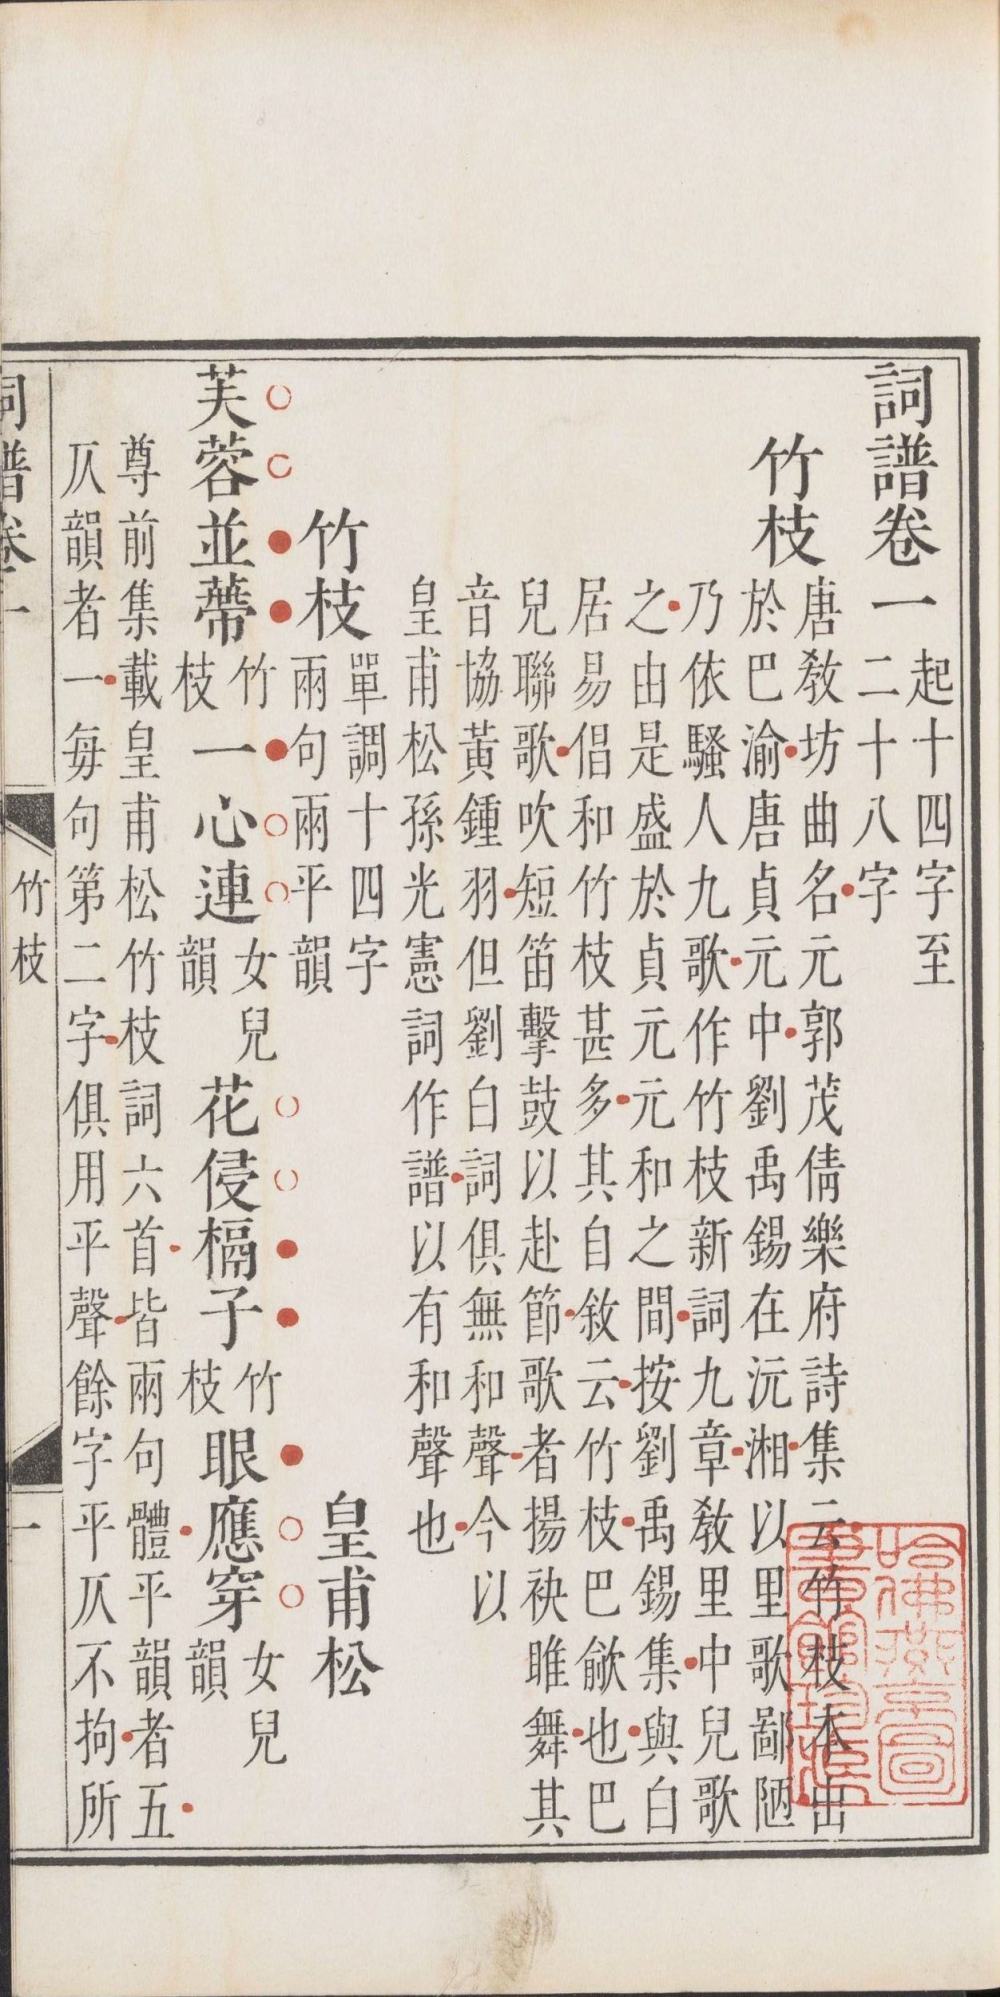 詞譜卷一 起十四字至
二十八字
竹枝 唐教坊曲名元郭茂倩樂府詩集云竹枝本出
於巴渝唐貞元中劉禹錫在沅湘以里歌鄙陋
乃依騷人九歌作竹枝新詞九章教里中兒歌
之由是盛於貞元元和之間按劉禹錫集與白
居易倡和竹枝甚多其自敘云竹枝巴歈也巴
兒聯歌吹短笛擊鼓以赴節歌者揚袂睢舞其
音協黃鍾羽但劉白詞俱無和聲今以
皇甫松孫光憲詞作譜以有和聲也
竹枝 單調十四字 兩句兩平韻 皇甫松
芙蓉並蔕 竹枝 一心連 女兒韻 花侵槅子 竹枝 眼應穿 女兒韻
尊前集載皇甫松竹枝詞六首皆兩句體平韻者五
仄韻者一每句第二字俱用平聲餘字平仄不拘所
詞譜卷一 竹枝 一
哈佛燕京圖
書館珍藏